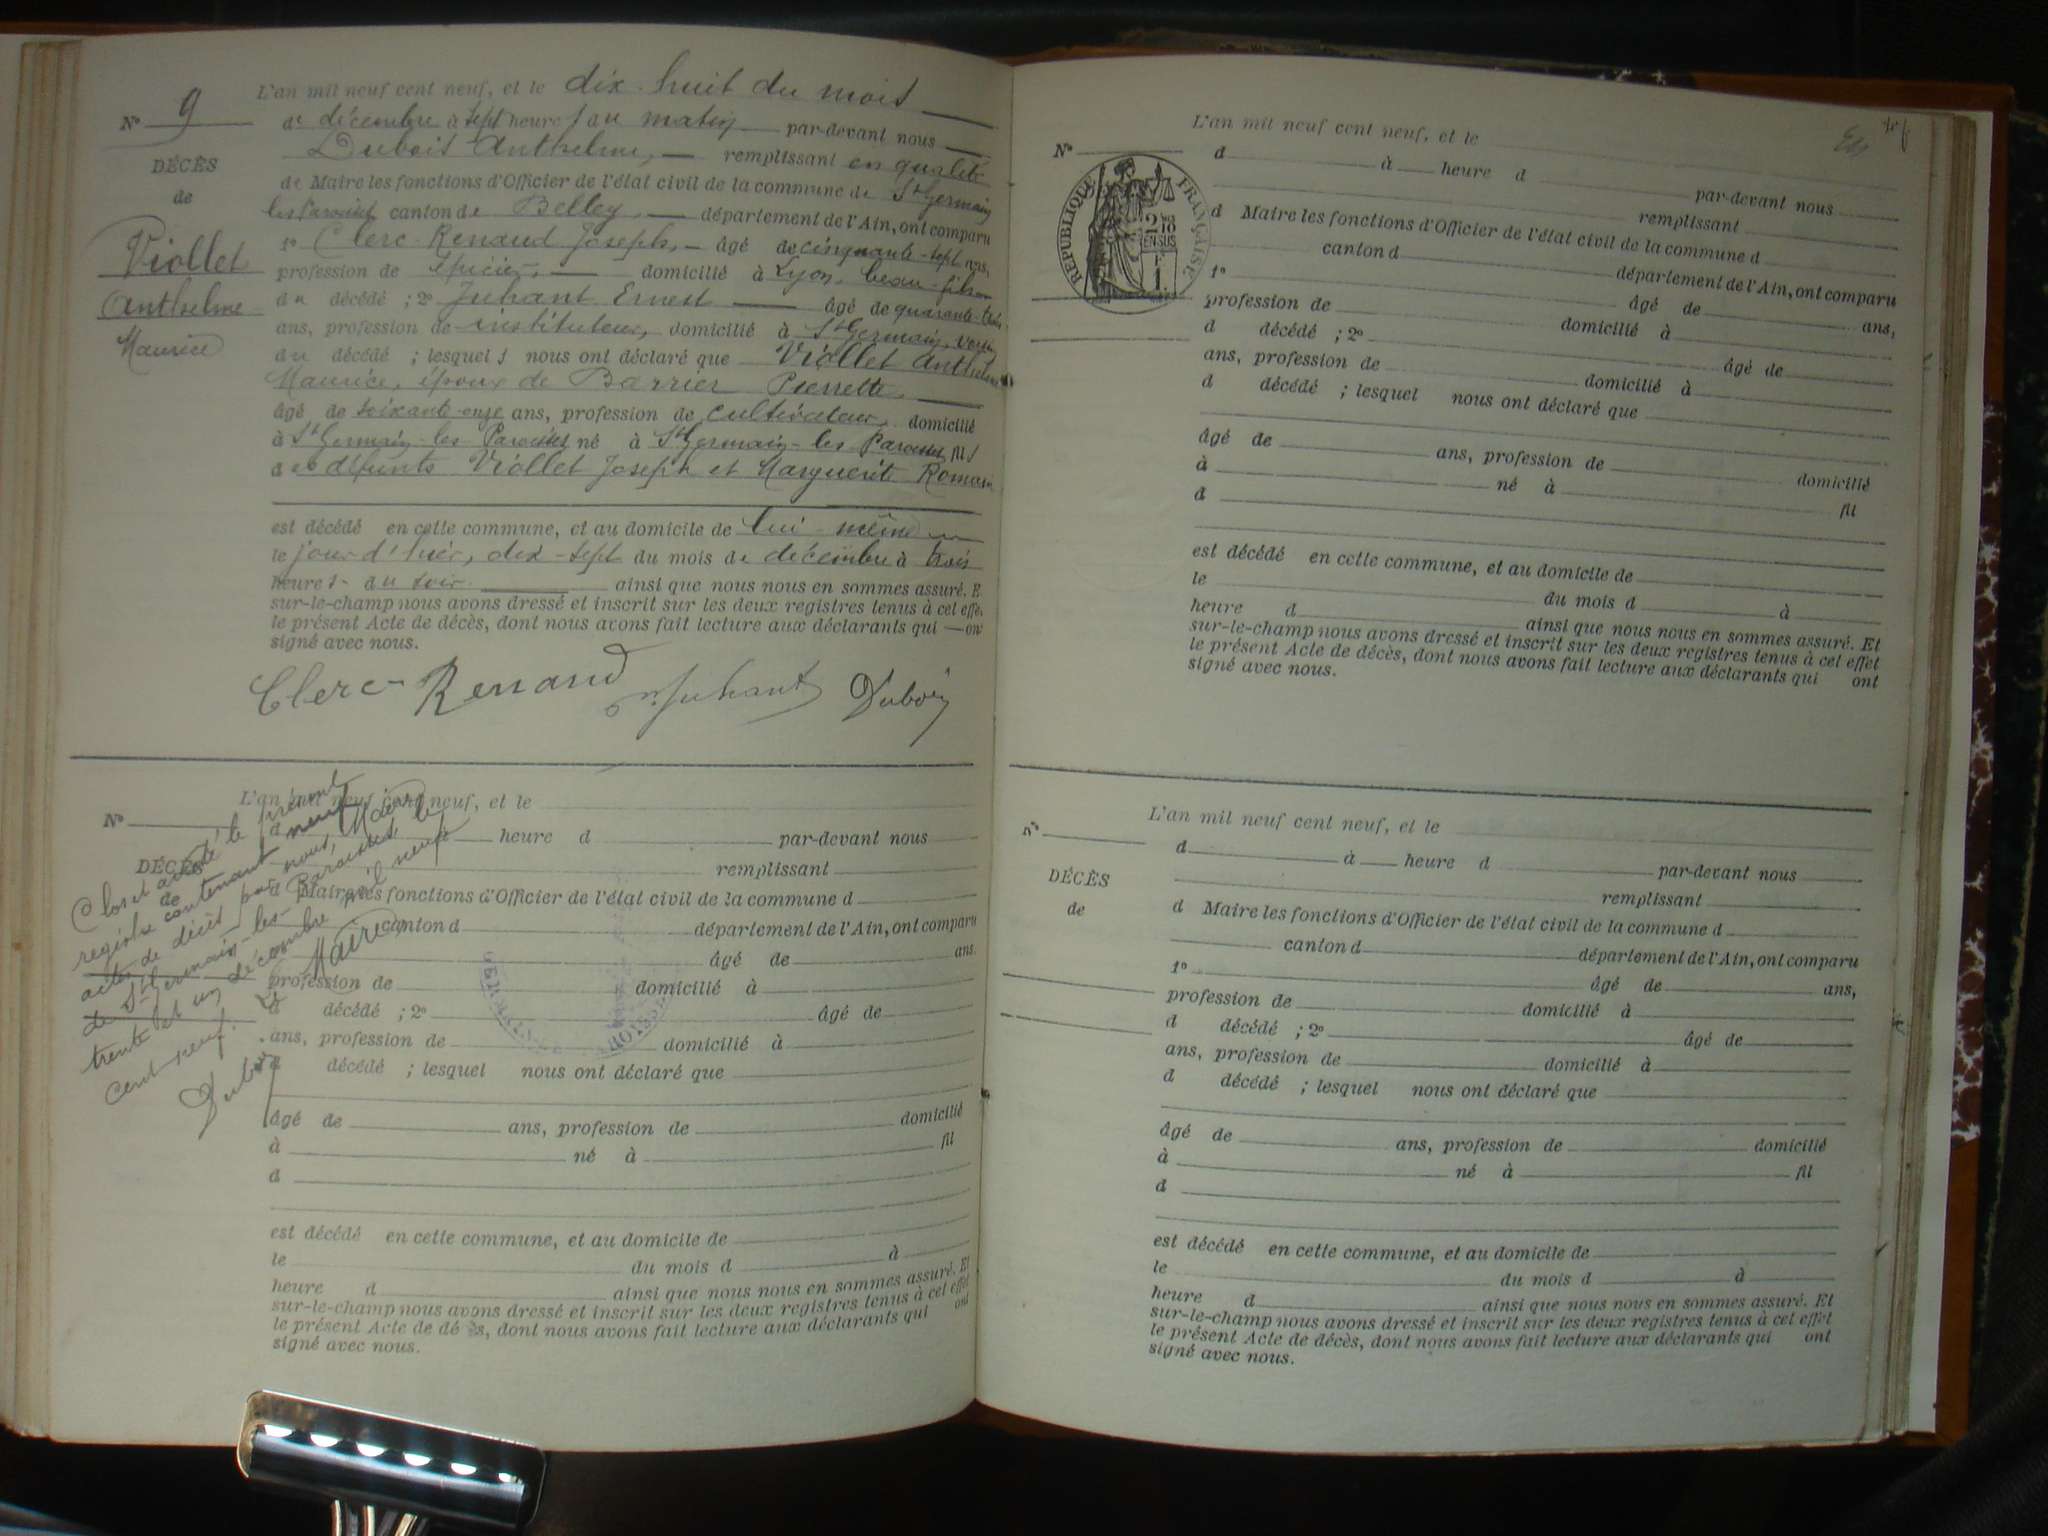 N° 9
DÉCÈS
de
Viollet
Anthelme
Maurice
L'an mil neuf cent neuf, et le dix huit du mois
de décembre à sept heures du matin par-devant nous
Dubois Anthelme, remplissant en qualité
de Maire les fonctions d'Officier de l'état civil de la commune de St Germain
les Paroisses canton de Belley, département de l'Ain, ont comparu
1° Clerc-Renaud Joseph, âgé de cinquante-sept ans,
profession de épicier, domicilié à Lyon, beau-fils
du décédé ; 2° Juhant Ernest âgé de quarante-trois
ans, profession de instituteur, domicilié à St Germain, voisin
du décédé ; lesquels nous ont déclaré que Viollet Anthelme
Maurice, époux de Barrier Pierrette,
âgé de soixante-onze ans, profession de cultivateur, domicilié
à St Germain-les-Paroisses né à St Germain-les-Paroisses fils
des défunts Viollet Joseph et Marguerite Romain
est décédé en cette commune, et au domicile de lui-même
le jour d'hier, dix-sept du mois de décembre à trois
heures du soir ainsi que nous nous en sommes assuré. E
sur-le-champ nous avons dressé et inscrit sur les deux registres tenus à cet effe
le présent Acte de décès, dont nous avons fait lecture aux déclarants qui — on
signé avec nous.
Clerc-Renaud Juhant Dubois
N°
DÉCÈS
de
Clos et arrêté le présent
registre contenant neuf
actes de décès par nous, Maire
de St Germain-les-Paroisses, le
trente et un décembre mil neuf
cent neuf.
Maire
Dubois
L'an mil neuf cent neuf, et le
heure d par-devant nous
remplissant
d Maire les fonctions d'Officier de l'état civil de la commune d
canton d département de l'Ain, ont comparu
âgé de ans.
profession de domicilié à
d décédé ; 2° âgé de
ans, profession de domicilié à
d décédé ; lesquel nous ont déclaré que
âgé de ans, profession de domicilié
à né à fil
d
est décédé en cette commune, et au domicile de
le du mois d à
heure d ainsi que nous nous en sommes assuré. Et
sur-le-champ nous avons dressé et inscrit sur les deux registres tenus à cet effet
le présent Acte de dé ès, dont nous avons fait lecture aux déclarants qui ont
signé avec nous.
N°
RÉPUBLIQUE FRANÇAISE
L'an mil neuf cent neuf, et le
d à heure d par-devant nous
remplissant
d Maire les fonctions d'Officier de l'état civil de la commune d
canton d département de l'Ain, ont comparu
1° âgé de ans,
profession de domicilié à
d décédé ; 2° âgé de
ans, profession de domicilié à
d décédé ; lesquel nous ont déclaré que
âgé de ans, profession de domicilié
à né à fil
d
est décédé en cette commune, et au domicile de
le du mois d à
heure d ainsi que nous nous en sommes assuré. Et
sur-le-champ nous avons dressé et inscrit sur les deux registres tenus à cet effet
le présent Acte de décès, dont nous avons fait lecture aux déclarants qui ont
signé avec nous.
N°
DÉCÈS
de
L'an mil neuf cent neuf, et le
d à heure d par-devant nous
remplissant
d Maire les fonctions d'Officier de l'état civil de la commune d
canton d département de l'Ain, ont comparu
1° âgé de ans,
profession de domicilié à
d décédé ; 2° âgé de
ans, profession de domicilié à
d décédé ; lesquel nous ont déclaré que
âgé de ans, profession de domicilié
à né à fil
d
est décédé en cette commune, et au domicile de
le du mois d à
heure d ainsi que nous nous en sommes assuré. Et
sur-le-champ nous avons dressé et inscrit sur les deux registres tenus à cet effet
le présent Acte de décès, dont nous avons fait lecture aux déclarants qui ont
signé avec nous.